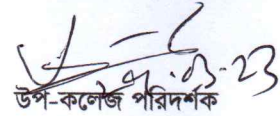 .03-23
উপ-কলেজ পরিদর্শক